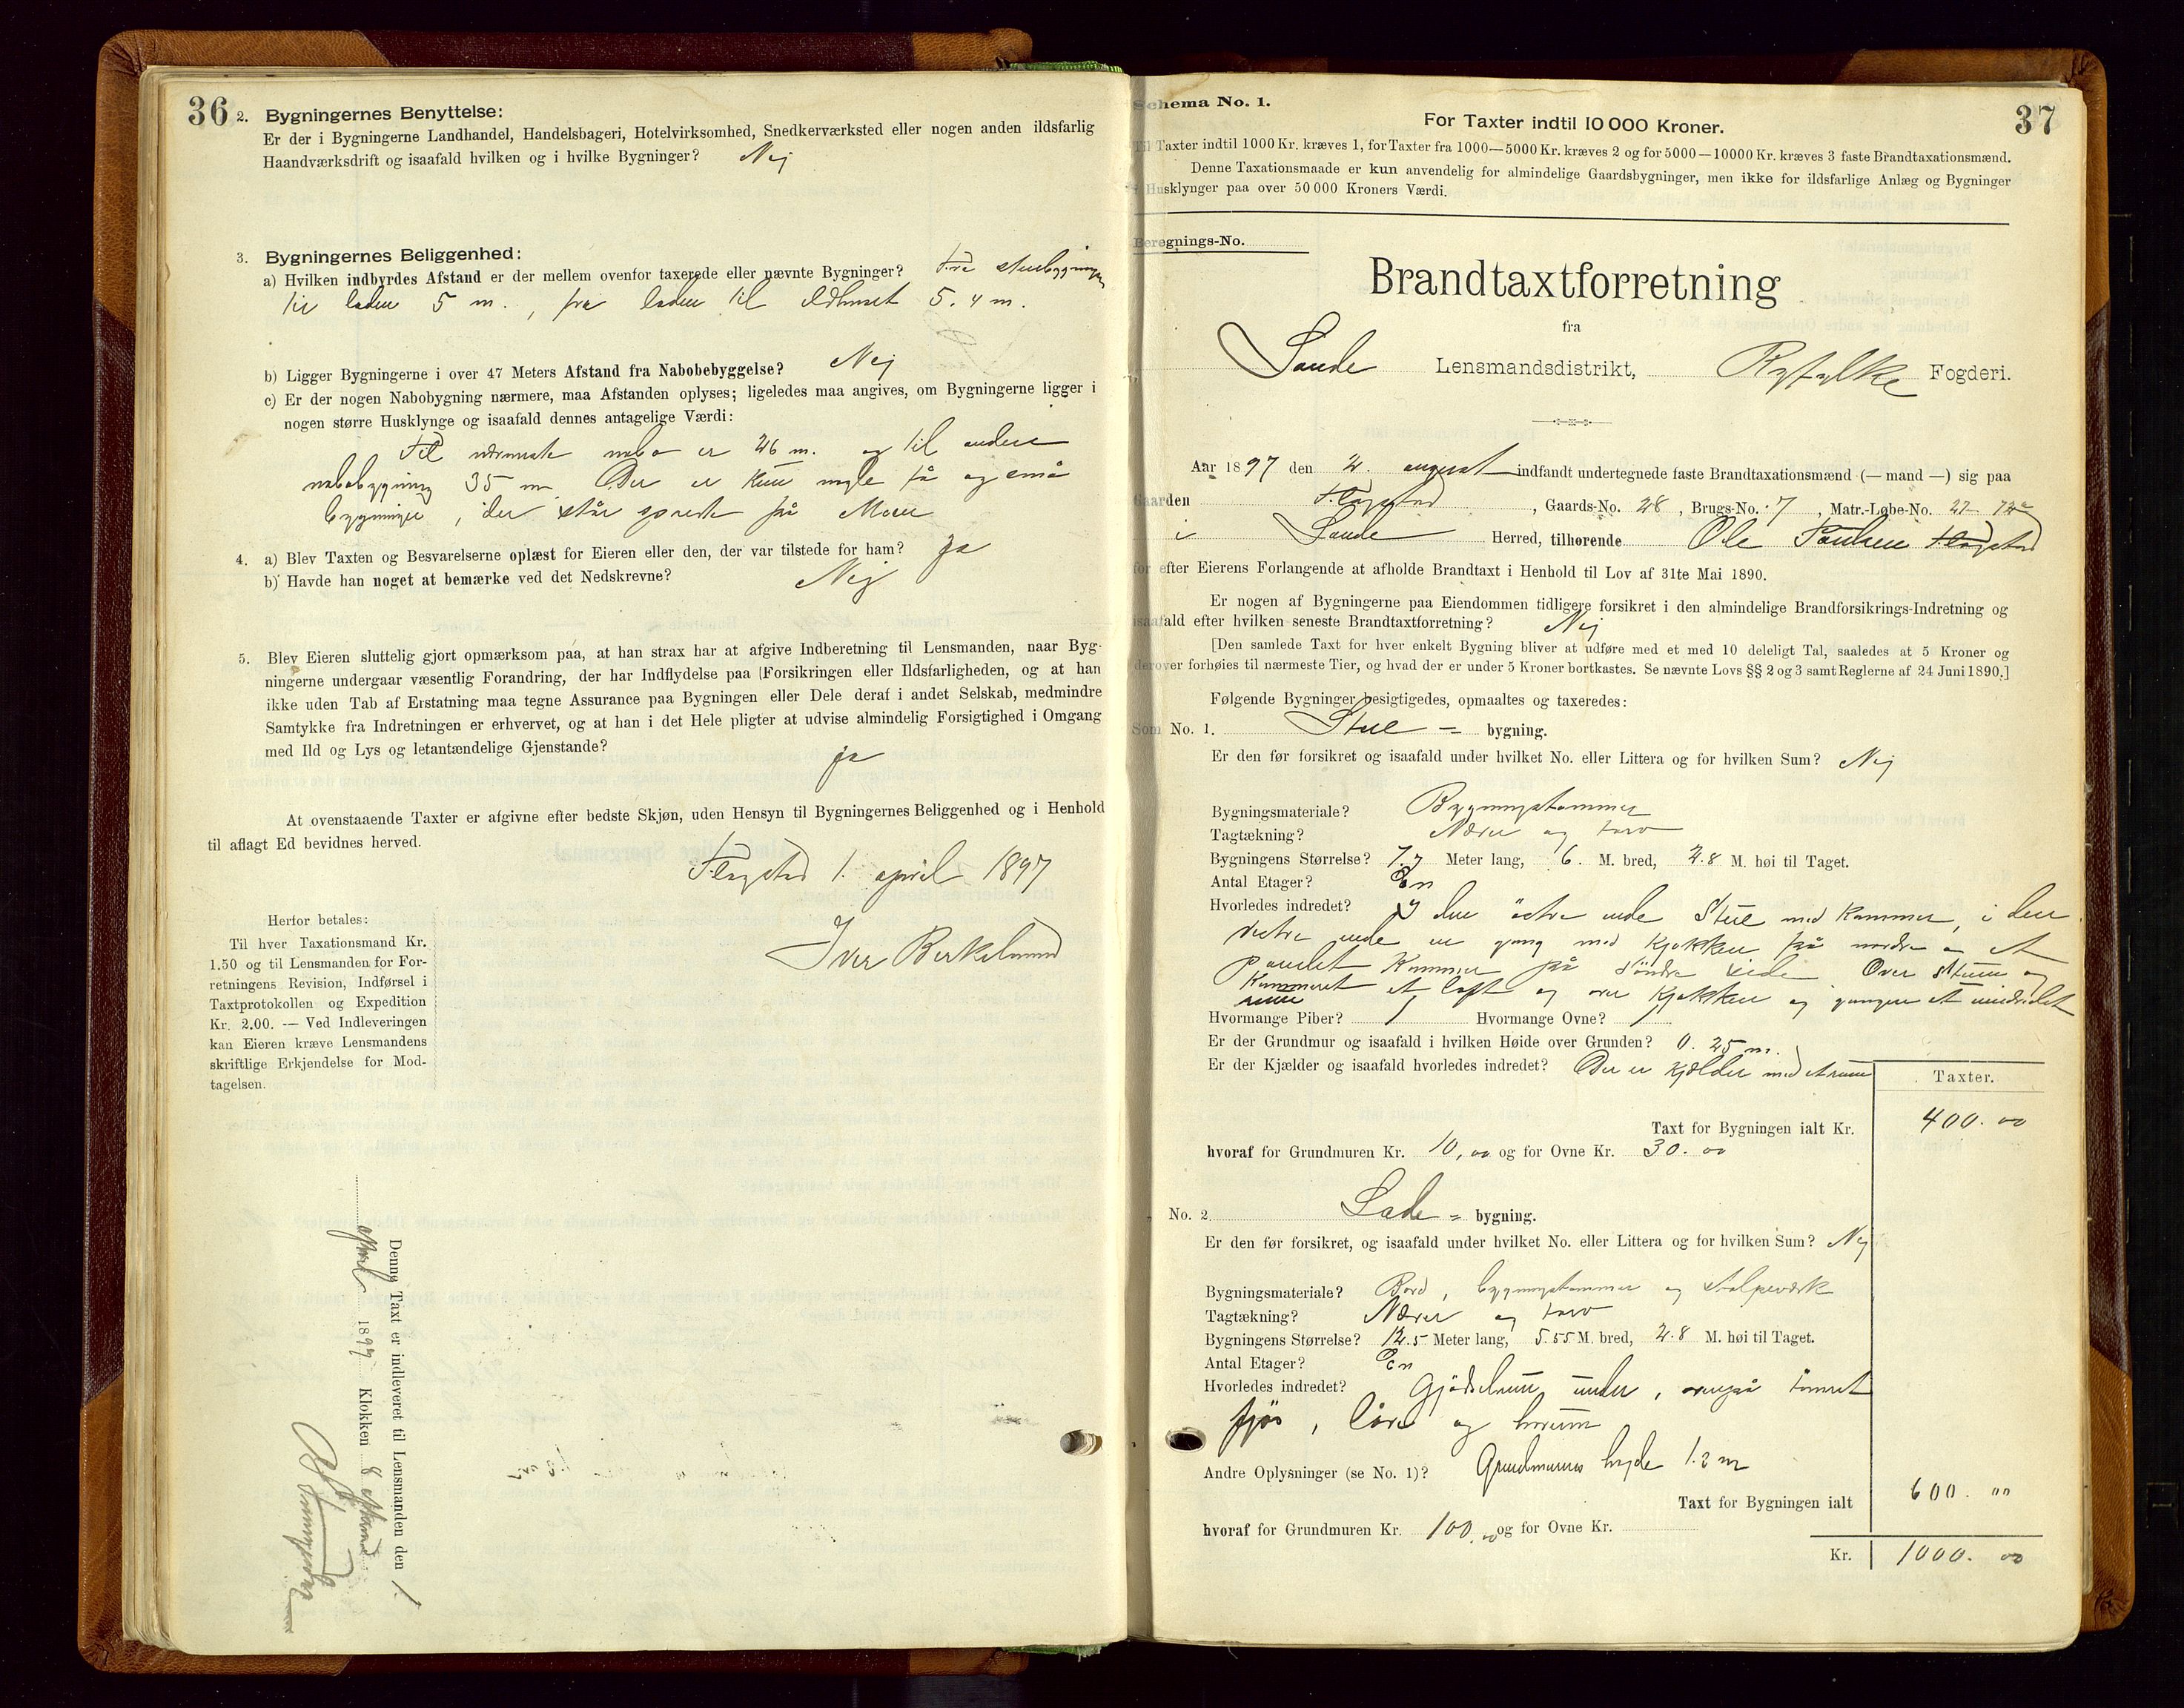 36
2. Bygningernes Benyttelse:
Er der i Bygningerne Landhandel, Handelsbageri, Hotelvirksomhed, Snedkerværksted eller nogen anden ildsfarlig
Haandværksdrift og isaafald hvilken og i hvilke Bygninger? Nej
3. Bygningernes Beliggenhed:
a) Hvilken indbyrdes Afstand er der mellem ovenfor taxerede eller nævnte Bygninger? Fra stuebygningen
til laden 5 m., fra laden til Ildhuset 5.4 m.
b) Ligger Bygningerne i over 47 Meters Afstand fra Nabobebyggelse? Nej
c) Er der nogen Nabobygning nærmere, maa Afstanden oplyses; ligeledes maa angives, om Bygningerne ligger i
nogen større Husklynge og isaafald dennes antagelige Værdi:
Til nærmeste nabo er 26 m. og til anden
nabobygning 35 m. Der er kun nogle få og små
bygninger, der står spredt på
4. a) Blev Taxten og Besvarelserne oplæst for Eieren eller den, der var tilstede for ham? Ja
b) Havde han noget at bemærke ved det Nedskrevne? Nej
5. Blev Eieren sluttelig gjort opmærksom paa, at han strax har at afgive Indberetning til Lensmanden, naar Byg-
ningerne undergaar væsentlig Forandring, der har Indflydelse paa Forsikringen eller Ildsfarligheden, og at han
ikke uden Tab af Erstatning maa tegne Assurance paa Bygningen eller Dele deraf i andet Selskab, medmindre
Samtykke fra Indretningen er erhvervet, og at han i det Hele pligter at udvise almindelig Forsigtighed i Omgang
med Ild og Lys og letantændelige Gjenstande? Ja
At ovenstaaende Taxter er afgivne efter bedste Skjøn, uden Hensyn til Bygningernes Beliggenhed og i Henhold
til aflagt Ed bevidnes herved.
Flagstad 1. april 1897
Iver Birkeland
Herfor betales:
Til hver Taxationsmand Kr.
1.50 og til Lensmanden for For-
retningens Revision, Indførsel i
Taxtprotokollen og Expedition
Kr. 2.00. — Ved Indleveringen
kan Eieren kræve Lensmandens
skriftlige Erkjendelse for Mod-
tagelsen.
Denne Taxt er indleveret til Lensmanden den 1.
april 1897 Klokken 8
37
Schema No. 1.
For Taxter indtil 10 000 Kroner.
Til Taxter indtil 1000 Kr. kræves 1, for Taxter fra 1000—5000 Kr. kræves 2 og for 5000—10000 Kr. kræves 3 faste Brandtaxationsmænd.
Denne Taxationsmaade er kun anvendelig for almindelige Gaardsbygninger, men ikke for ildsfarlige Anlæg og Bygninger
i Husklynger paa over 50 000 Kroners Værdi.
Beregnings-No.
Brandtaxtforretning
fra
Saude Lensmandsdistrikt, Ryfylke Fogderi.
Aar 1897 den 2. august indfandt undertegnede faste Brandtaxationsmænd (— mand —) sig paa
Gaarden Flagstad, Gaards-No. 28, Brugs-No. 7, Matr.-Løbe-No. 27
i Saude Herred, tilhørende Ole Paulsen Flagstad
for efter Eierens Forlangende at afholde Brandtaxt i Henhold til Lov af 31te Mai 1890.
Er nogen af Bygningerne paa Eiendommen tidligere forsikret i den almindelige Brandforsikrings-Indretning og
isaafald efter hvilken seneste Brandtaxtforretning? Nej
[Den samlede Taxt for hver enkelt Bygning bliver at udføre med et med 10 deleligt Tal, saaledes at 5 Kroner og
derover forhøies til nærmeste Tier, og hvad der er under 5 Kroner bortkastes. Se nævnte Lovs §§ 2 og 3 samt Reglerne af 24 Juni 1890.]
Følgende Bygninger besigtigedes, opmaaltes og taxeredes:
Som No. 1. Stue = bygning.
Er den før forsikret og isaafald under hvilket No. eller Littera og for hvilken Sum? Nej
Bygningsmateriale? Bygningstømmer
Tagtækning? Næver og torv
Bygningens Størrelse? 7.7 Meter lang, 6. M. bred, 2.8 M. høi til Taget.
Antal Etager? En
Hvorledes indredet? I den östre ende Stue med Kammer, i den
vestre ende en gang med Kjøkken på nordre og et
panelet Kammer på söndre side. Over Stuen og
Kammeret et loft og over Kjøkken og gangen et uindredet
rum
Hvormange Piber? 1 Hvormange Ovne? 1
Er der Grundmur og isaafald i hvilken Høide over Grunden? 0.25 m.
Er der Kjælder og isaafald hvorledes indredet? Der er Kjælder med et rum
Taxter.
Taxt for Bygningen ialt Kr. 400.00
hvoraf for Grundmuren Kr. 10,00 og for Ovne Kr. 30.00
No. 2 Lade = bygning.
Er den før forsikret, og isaafald under hvilket No. eller Littera og for hvilken Sum? Nej
Bygningsmateriale? Bord, bygningstømmer og stolpeværk
Tagtækning? Næver og torv
Bygningens Størrelse? 12.5 Meter lang, 5.55 M. bred, 2.8 M. høi til Taget.
Antal Etager? En
Hvorledes indredet? Gjødselrum under, ovenpå tömret
fjös, låve og hørum
Andre Oplysninger (se No. 1)? Grundmurens høyde 1.3 m
Taxt for Bygningen ialt 600.00
hvoraf for Grundmuren Kr. 100.00 og for Ovne Kr.
Kr. 1000.00